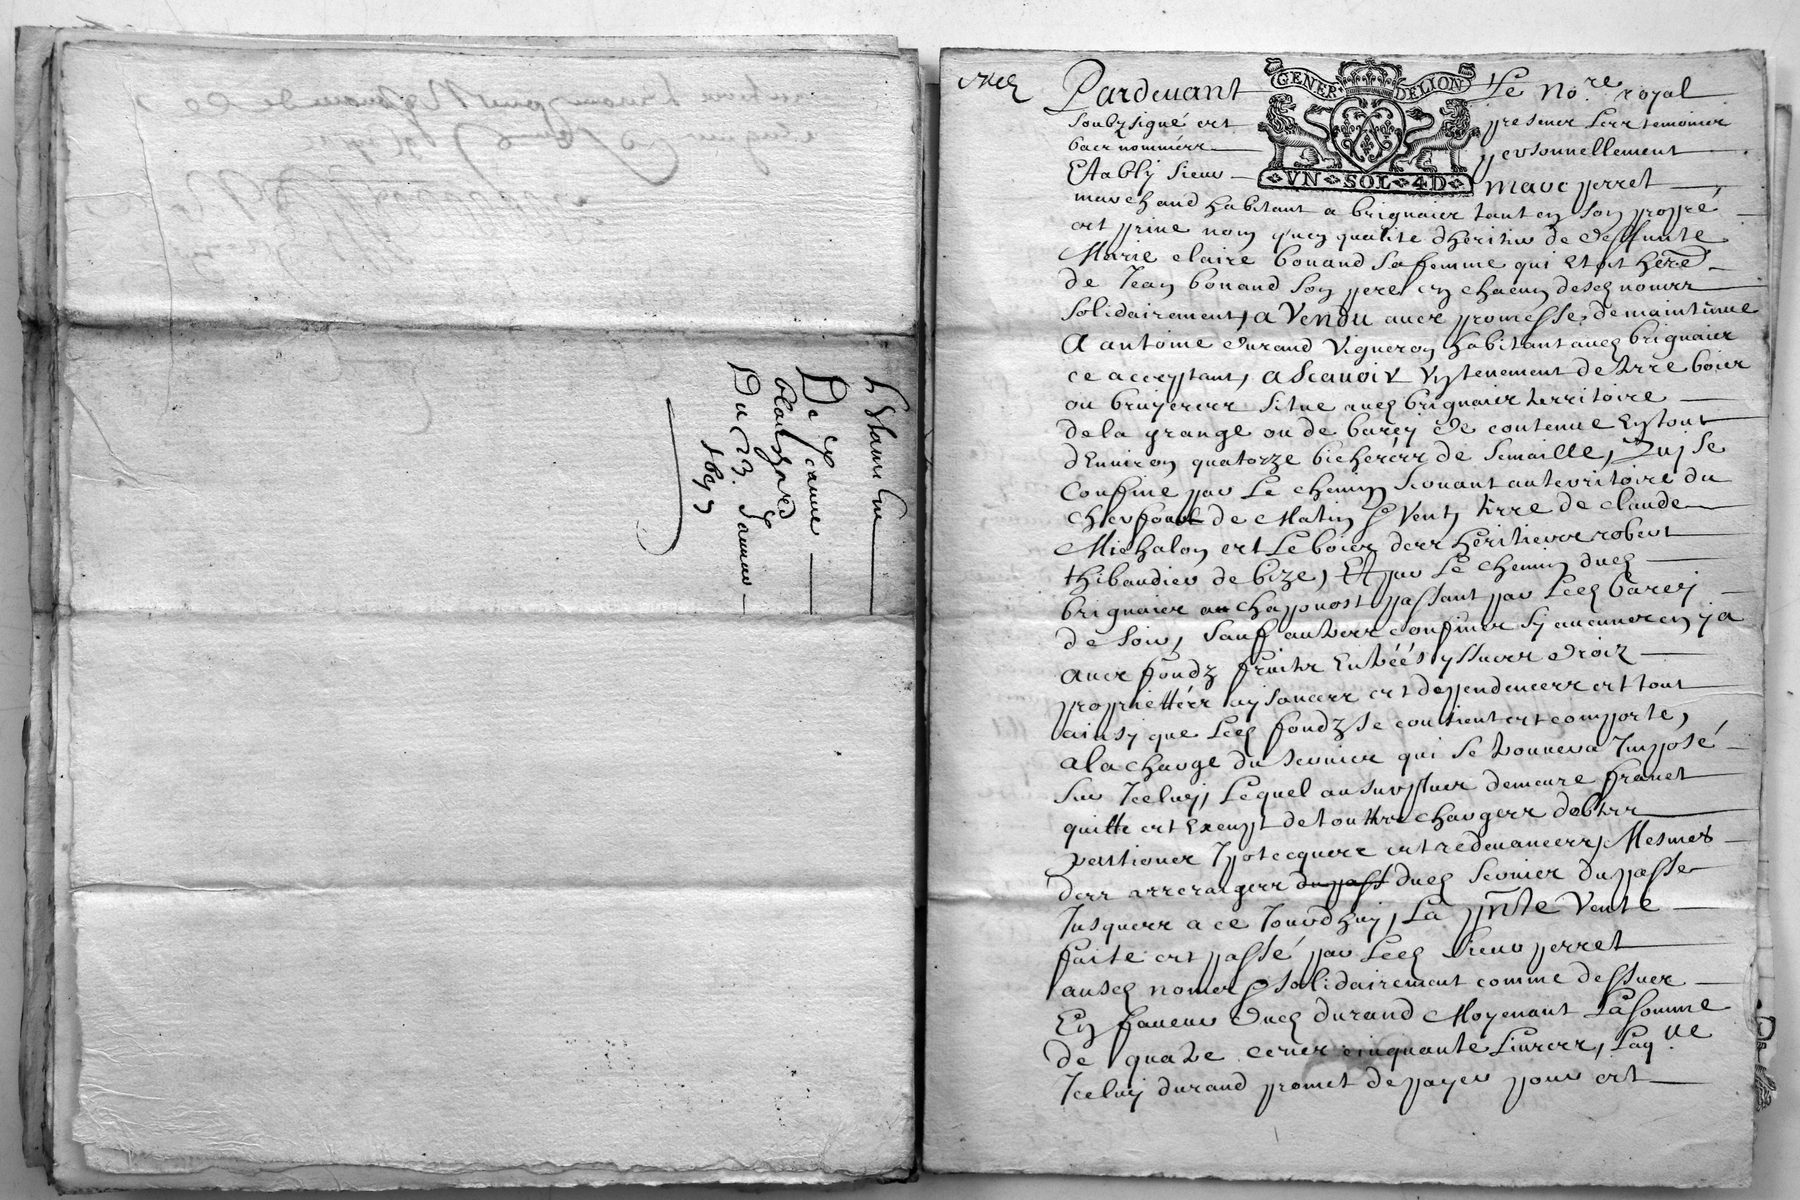 Testament
De Jeanne
blanchard
Du 23 Januier
1693
GENER DELION
VN SOL 4D
Pardeuant Le No.re royal
soubzsigné et presence des temoins
bas nommés personnellement
Estably sieur marc perret
marchand habitant a brignais tant en son propre
et priué nom qu'en qualité d'héritier de deffunte
Marie claire bonand sa femme qui Etoit here
de Jean bonand son pere en chacun desd noms
solidairement, a Vendu auec promesse de maintenue
A antoine durand Vigneron habitant aud brignais
ce acceptant, a Scauoir Vn tenement de terre bois
ou bruyeres situé aud brignais territoire
de la grange ou de barey de contenue En tout
d'Enuiron quatorze bicherées de semaille, Qui se
Confine par Le chemin tirant au territoire du
de Matin Vent, terre de claude
Michalon et Le bois des héritiers robert
thibaudier de bize, Et par Le chemin dud
brignais au chapponost passant par Led barey
de soir, sauf autres confins sy aucuns en y a
auec fondz fruits Entrées yssues droiz
propriettés aysances et deppendences et tout
ainsy que Led fondz se contient et comporte,
a la charge du seruis qui se trouuera Imposé
sur Iceluy, Lequel au surplus demeure franct
quitte et Exempt de touttes charges debtes
pentions Ipotecques et redeuances, Mesmes
des arrerages du pass dud seruis du passé
Jusques a ce Jourdhuy, La pnte Vente
faite et passé par Led sieur perret
ausd noms solidairement comme dessus
En faueur dud durand Moyenant La somme
de quatre cens cinquante Liures, Laqlle
Iceluy durand promet de payer pour et